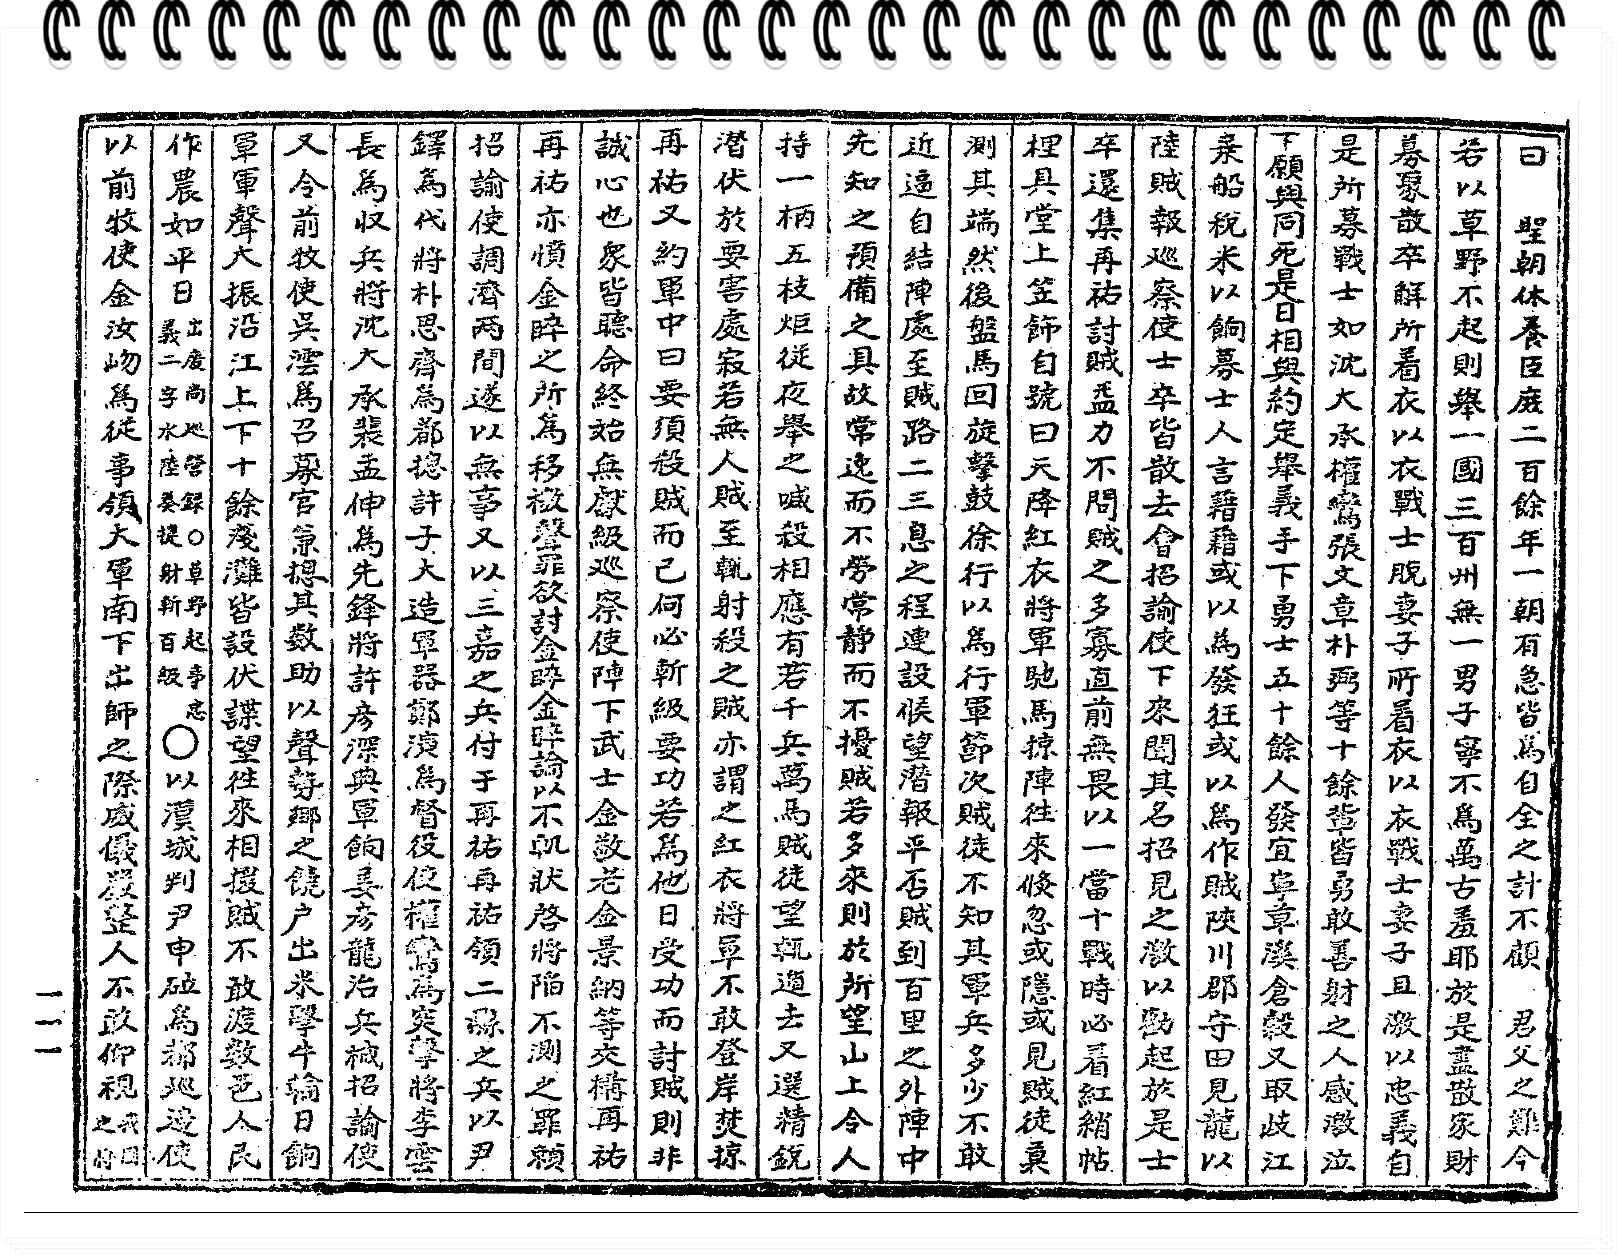 曰 聖朝休養臣庭二百餘年一朝有急皆爲自全之計不顧 君父之難今
若以草野不起則擧一國三百州無一男子寧不爲萬古羞耶於是盡散家財
募聚散卒解所着衣以衣戰士脫妻子所着衣以衣戰士妻子且激以忠義自
是所募戰士如沈大承權鸞張文章朴弼等十餘輩皆勇敢善射之人感激泣
下願與同死是日相與約定擧義手下勇士五十餘人發宜寧草溪倉穀又取歧江
棄船稅米以餉募士人言藉藉或以爲發狂或以爲作賊陜川郡守田見龍以
陸賊報巡察使士卒皆散去會招諭使下來聞其名招見之激以勸起於是士
卒還集再祐討賊益力不問賊之多寡直前無畏以一當十戰時必着紅綃帖
裡具堂上笠飾自號曰天降紅衣將軍馳馬掠陣往來倏忽或隱或見賊徒莫
測其端然後盤馬回旋擊鼓徐行以爲行軍節次賊徒不知其軍兵多少不敢
近逼自結陣處至賊路二三息之程連設候望潜報平否賊到百里之外陣中
先知之預備之具故常逸而不勞常静而不擾賊若多來則於所望山上令人
持一柄五枝炬從夜擧之喊殺相應有若千兵萬馬賊徒望輒遁去又選精銳
潜伏於要害處寂若無人賊至輒射殺之賊亦謂之紅衣將軍不敢登岸焚掠
再祐又約軍中曰要須殺賊而已何必斬級要功若爲他日受功而討賊則非
誠心也衆皆聽命終始無獻級巡察使陣下武士金敬老金景納等交構再祐
再祐亦憤金睟之所爲移檄聲罪欲討金睟金睟論以不軌狀啓將陷不測之罪賴
招諭使調濟两間遂以無事又以三嘉之兵付于再祐再祐領二縣之兵以尹
鐸爲代將朴思齊爲都摠許子大造軍器鄭演爲督役使權鸞爲突擊將李雲
長爲收兵將沈大承裴孟伸爲先鋒將許彦深典軍餉姜彦龍治兵械招諭使
又令前牧使吳澐爲召募官兼摠其数助以聲勢鄕之饒户出米擊牛輪日餉
軍軍聲大振沿江上下十餘淺灘皆設伏諜望往來相援賊不敢渡数邑人民
作農如平日出慶尚巡營録○草野起事忠義二字水陸奏提射斬百級○以漢城判尹申砬爲都巡邊使
以前牧使金汝岉爲從事領大軍南下出師之際威儀嚴整人不敢仰視我國之將
一一一